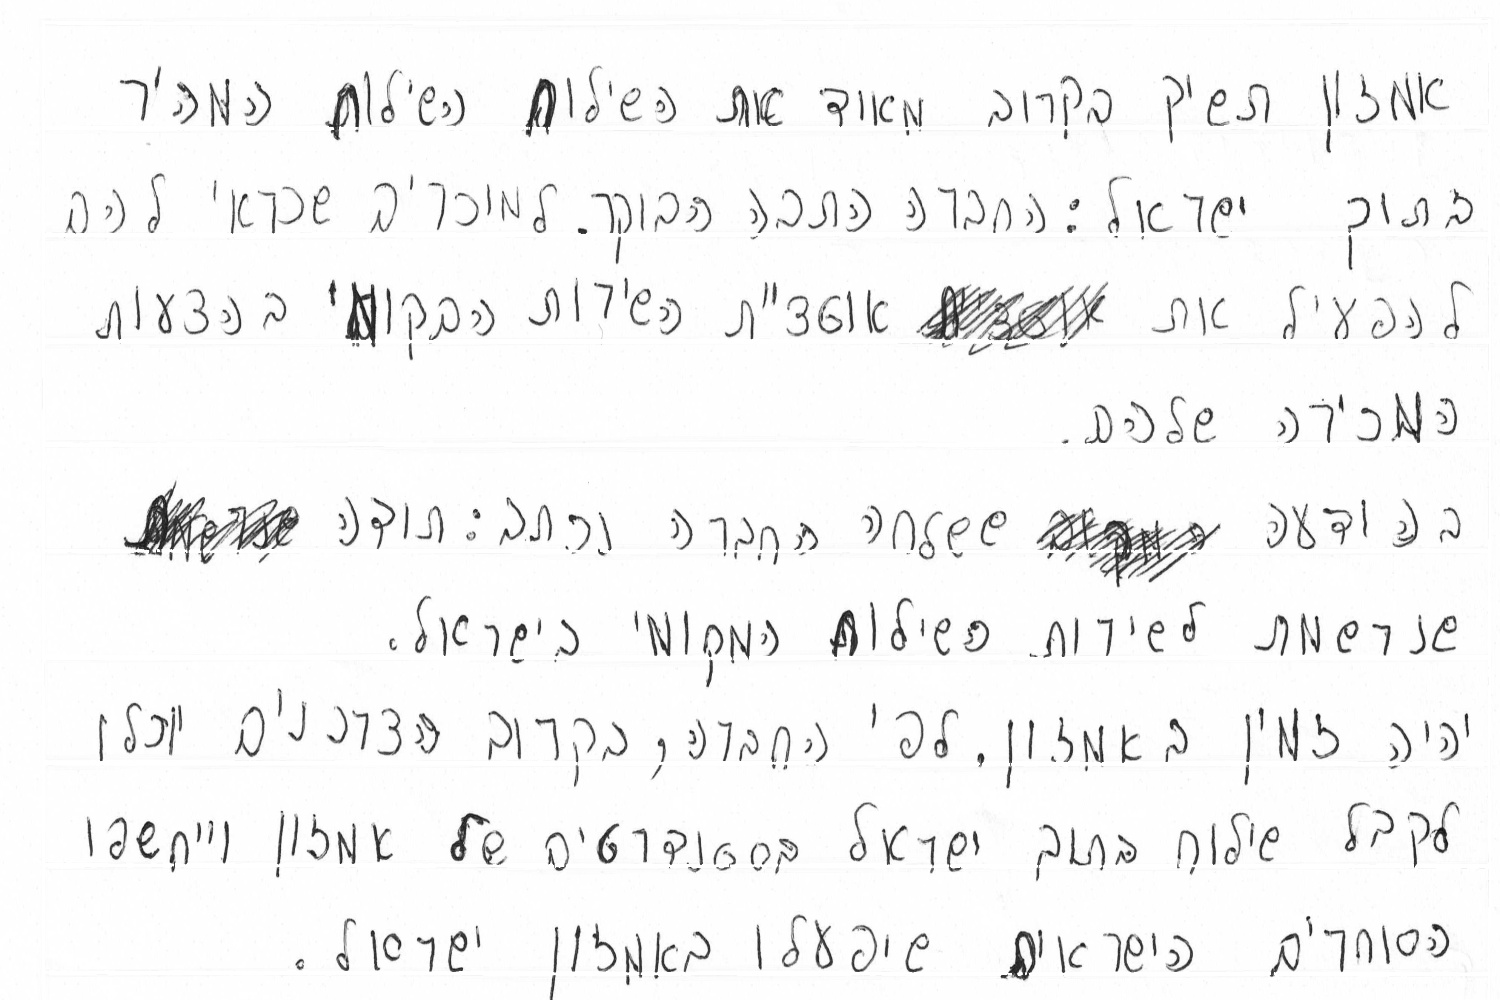 אמזון תשיק בקרוב מאוד את השילוח השילוח המהיר
בתוך ישראל: החברה התבה הבוקר. למוכרים שכדאי להם
להפעיל את אוטצ"ת השירות המקומי בהצעות
המכירה שלהם.
בהודעה ששלחה החברה נכתב: תודה
שנרשמת לשירות השילוח המקומי בישראל.
יהיה זמין באמזון. לפי החברה, בקרוב הצרכנים יוכלו
לקבל שילוח בתוך ישראל בסטנדרטים של אמזון וייחשפו
הסוחרים הישראים שיפעלו באמזון ישראל.